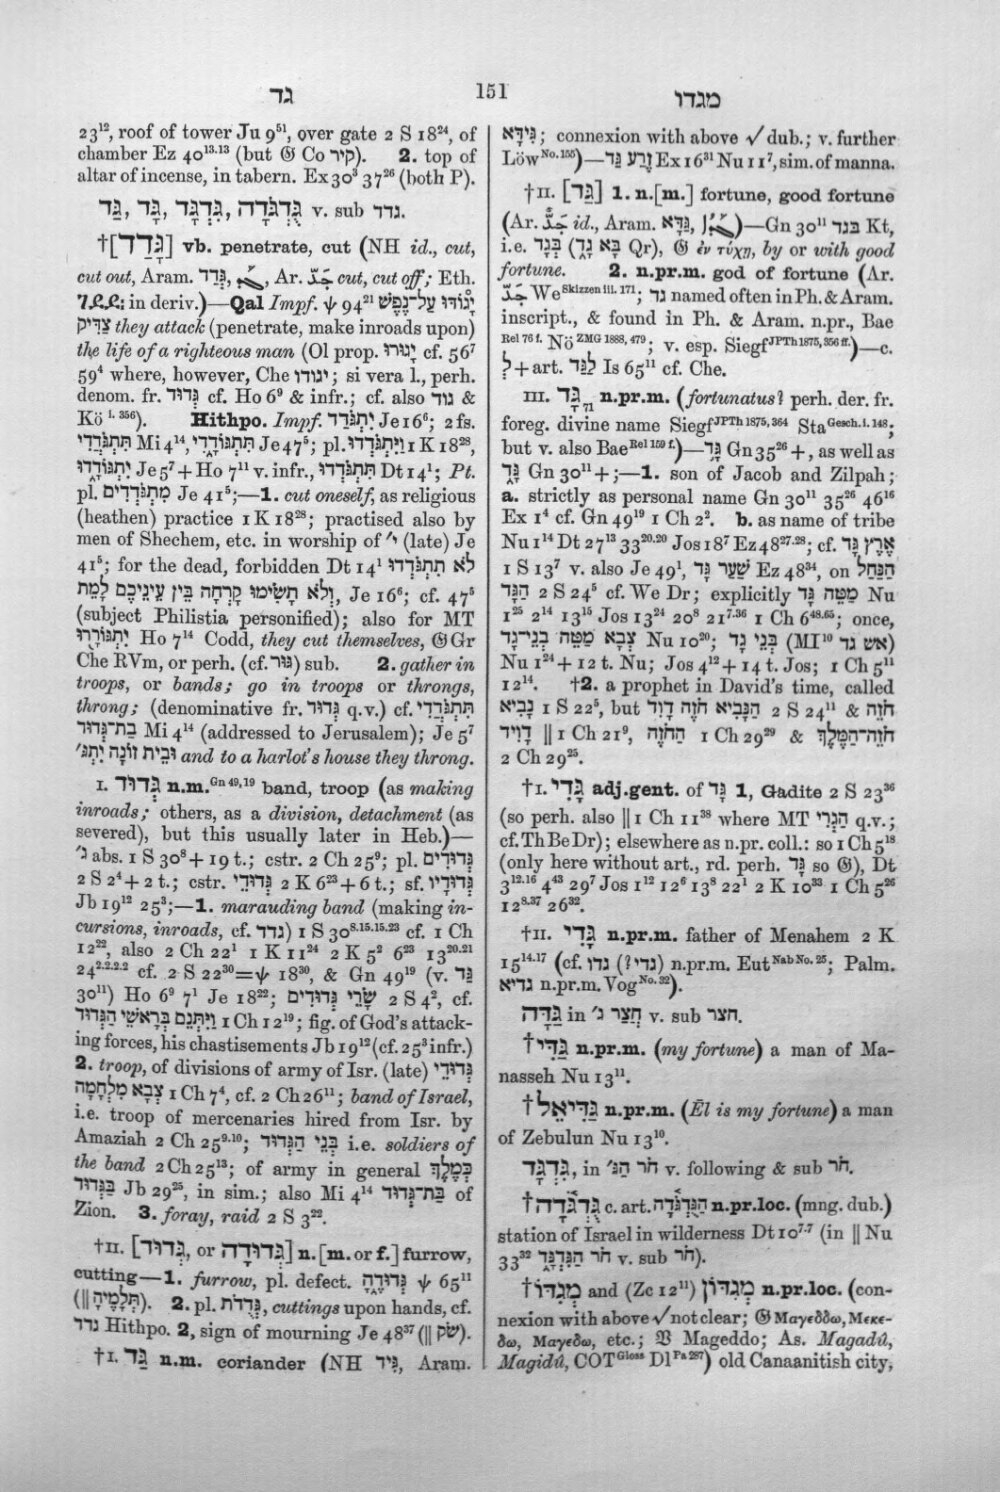 גד
151
מגדו
23¹², roof of tower Ju 9⁵¹, over gate 2 S 18²⁴, of
chamber Ez 40¹³·¹³ (but 𝔊 Co קיר). 2. top of
altar of incense, in tabern. Ex 30³ 37²⁶ (both P).
גַּד, גָּד, גִּדְגָּד, גֻּדְגֹּדָה v. sub גדד.
†[גָּדַד] vb. penetrate, cut (NH id., cut,
cut out, Aram. גְּדַד, Ar. جَدَّ cut, cut off; Eth.
in deriv.)—Qal Impf. ψ 94²¹ יָגוֹדּוּ עַל־נֶפֶשׁ
צַדִּיק they attack (penetrate, make inroads upon)
the life of a righteous man (Ol prop. יָגוּרוּ cf. 56⁷
59⁴ where, however, Che יגודו; si vera l., perh.
denom. fr. גְּדוּד cf. Ho 6⁹ & infr.; cf. also גוד &
Kö i. 356). Hithpo. Impf. יִתְגֹּדַד Je 16⁶; 2 fs.
תִּתְגֹּדְדִי Mi 4¹⁴, תִּתְגּוֹדָדִי Je 47⁵; pl. וַיִּתְגֹּדְדוּ 1 K 18²⁸,
יִתְגּוֹדָדוּ Je 5⁷ + Ho 7¹¹ v. infr., תִּתְגֹּדְדוּ Dt 14¹; Pt.
pl. מִתְגֹּדְדִים Je 41⁵;—1. cut oneself, as religious
(heathen) practice 1 K 18²⁸; practised also by
men of Shechem, etc. in worship of י׳ (late) Je
41⁵; for the dead, forbidden Dt 14¹ לֹא תִתְגֹּדְדוּ
וְלֹא תָשִׂימוּ קָרְחָה בֵּין עֵינֵיכֶם לָמֵת, Je 16⁶; cf. 47⁵
(subject Philistia personified); also for MT
יִתְגּוֹרָרוּ Ho 7¹⁴ Codd, they cut themselves, 𝔊 Gr
Che RVm, or perh. (cf. גּוּר) sub. 2. gather in
troops, or bands; go in troops or throngs,
throng; (denominative fr. גְּדוּד q.v.) cf. תִּתְגֹּדְדִי
בַת־גְּדוּד Mi 4¹⁴ (addressed to Jerusalem); Je 5⁷
וּבֵית זוֹנָה יִתְגּ׳ and to a harlot's house they throng.
I. גְּדוּד n.m. Gn 49,19 band, troop (as making
inroads; others, as a division, detachment (as
severed), but this usually later in Heb.)—
ג׳ abs. 1 S 30⁸ + 19 t.; cstr. 2 Ch 25⁹; pl. גְּדוּדִים
2 S 2⁴ + 2 t.; cstr. גְּדוּדֵי 2 K 6²³ + 6 t.; sf. גְּדוּדָיו
Jb 19¹² 25³;—1. marauding band (making in-
cursions, inroads, cf. גדד) 1 S 30⁸·¹⁵·¹⁵·²³ cf. 1 Ch
12²², also 2 Ch 22¹ 1 K 11²⁴ 2 K 5² 6²³ 13²⁰·²¹
24²·²·²·² cf. 2 S 22³⁰=ψ 18³⁰, & Gn 49¹⁹ (v. גַּד
30¹¹) Ho 6⁹ 7¹ Je 18²²; שָׂרֵי גְדוּדִים 2 S 4², cf.
וַיִּתְּנֵם בְּרָאשֵׁי הַגְּדוּד 1 Ch 12¹⁹; fig. of God's attack-
ing forces, his chastisements Jb 19¹² (cf. 25³ infr.)
2. troop, of divisions of army of Isr. (late) גְּדוּדֵי
צְבָא מִלְחָמָה 1 Ch 7⁴, cf. 2 Ch 26¹¹; band of Israel,
i.e. troop of mercenaries hired from Isr. by
Amaziah 2 Ch 25⁹·¹⁰; בְּנֵי הַגְּדוּד i.e. soldiers of
the band 2 Ch 25¹³; of army in general כְּמֶלֶךְ
בַּגְּדוּד Jb 29²⁵, in sim.; also Mi 4¹⁴ בַּת־גְּדוּד of
Zion. 3. foray, raid 2 S 3²².
†II. [גְּדוּד, or גְּדוּדָה] n.[m. or f.] furrow,
cutting—1. furrow, pl. defect. גְּדוּדֶהָ ψ 65¹¹
(‖ תְּלָמֶיהָ). 2. pl. גְּדֻדֹת, cuttings upon hands, cf.
גדד Hithpo. 2, sign of mourning Je 48³⁷ (‖ שַׂק).
†I. גַּד n.m. coriander (NH גִּיד, Aram.
גִּידָא; connexion with above √ dub.; v. further
Löw No. 155)—זֶרַע גַּד Ex 16³¹ Nu 11⁷, sim. of manna.
†II. [גַּד] 1. n.[m.] fortune, good fortune
(Ar. جَدّ id., Aram. גַּדָּא)—Gn 30¹¹ בגד Kt,
i.e. בְּגָד (בָּא גָד Qr), 𝔊 ἐν τύχῃ, by or with good
fortune. 2. n.pr.m. god of fortune (Ar.
جَدّ We Skizzen iii. 171; גד named often in Ph. & Aram.
inscript., & found in Ph. & Aram. n.pr., Bae
Rel 76 f. Nö ZMG 1888, 479; v. esp. Siegf JPTh 1875, 356 ff.)—c.
לְ + art. לַגַּד Is 65¹¹ cf. Che.
III. גָּד 71 n.pr.m. (fortunatus? perh. der. fr.
foreg. divine name Siegf JPTh 1875, 364 Sta Gesch. i. 148;
but v. also Bae Rel 159 f.)—גָּד Gn 35²⁶ +, as well as
גָּד Gn 30¹¹ +;—1. son of Jacob and Zilpah;
a. strictly as personal name Gn 30¹¹ 35²⁶ 46¹⁶
Ex 1⁴ cf. Gn 49¹⁹ 1 Ch 2². b. as name of tribe
Nu 1¹⁴ Dt 27¹³ 33²⁰·²⁰ Jos 18⁷ Ez 48²⁷·²⁸; cf. אֶרֶץ גָּד
1 S 13⁷ v. also Je 49¹, שַׁעַר גָּד Ez 48³⁴, on הַנַּחַל
הַגָּד 2 S 24⁵ cf. We Dr; explicitly מַטֵּה גָד Nu
1²⁵ 2¹⁴ 13¹⁵ Jos 13²⁴ 20⁸ 21⁷·³⁶ 1 Ch 6⁴⁸·⁶⁵; once,
צְבָא מַטֵּה בְנֵי־גָד Nu 10²⁰; בְּנֵי גָד (MI¹⁰ אש גד)
Nu 1²⁴ + 12 t. Nu; Jos 4¹² + 14 t. Jos; 1 Ch 5¹¹
12¹⁴. †2. a prophet in David's time, called
נָבִיא 1 S 22⁵, but הַנָּבִיא חֹזֵה דָוִד 2 S 24¹¹ & חֹזֵה
דָּוִיד ‖ 1 Ch 21⁹, הַחֹזֶה 1 Ch 29²⁹ & חֹזֵה־הַמֶּלֶךְ
2 Ch 29²⁵.
†I. גָּדִי adj.gent. of גָּד 1, Gadite 2 S 23³⁶
(so perh. also ‖ 1 Ch 11³⁸ where MT הַגְרִי q.v.;
cf. Th Be Dr); elsewhere as n.pr. coll.: so 1 Ch 5¹⁸
(only here without art., rd. perh. גָּד so 𝔊), Dt
3¹²·¹⁶ 4⁴³ 29⁷ Jos 1¹² 12⁶ 13⁸ 22¹ 2 K 10³³ 1 Ch 5²⁶
12⁸·³⁷ 26³².
†II. גָּדִי n.pr.m. father of Menahem 2 K
15¹⁴·¹⁷ (cf. גדו (גדי?) n.pr.m. Eut Nab No. 25; Palm.
גדיא n.pr.m. Vog No. 32).
גַּדָּה in חֲצַר ג׳ v. sub חצר.
†גַּדִּי n.pr.m. (my fortune) a man of Ma-
nasseh Nu 13¹¹.
†גַּדִּיאֵל n.pr.m. (Ēl is my fortune) a man
of Zebulun Nu 13¹⁰.
גִּדְגָּד, in חֹר הַגּ׳ v. following & sub חֹר.
†גֻּדְגֹּדָה c. art. הַגֻּדְגֹּדָה n.pr.loc. (mng. dub.)
station of Israel in wilderness Dt 10⁷·⁷ (in ‖ Nu
33³² חֹר הַגִּדְגָּד v. sub חֹר).
†מְגִדּוֹ and (Zc 12¹¹) מְגִדּוֹן n.pr.loc. (con-
nexion with above √ not clear; 𝔊 Μαγεδδω, Μεκε-
δω, Μαγεδω, etc.; 𝔙 Mageddo; As. Magadû,
Magidû, COT Gloss Dl Pa 287) old Canaanitish city,